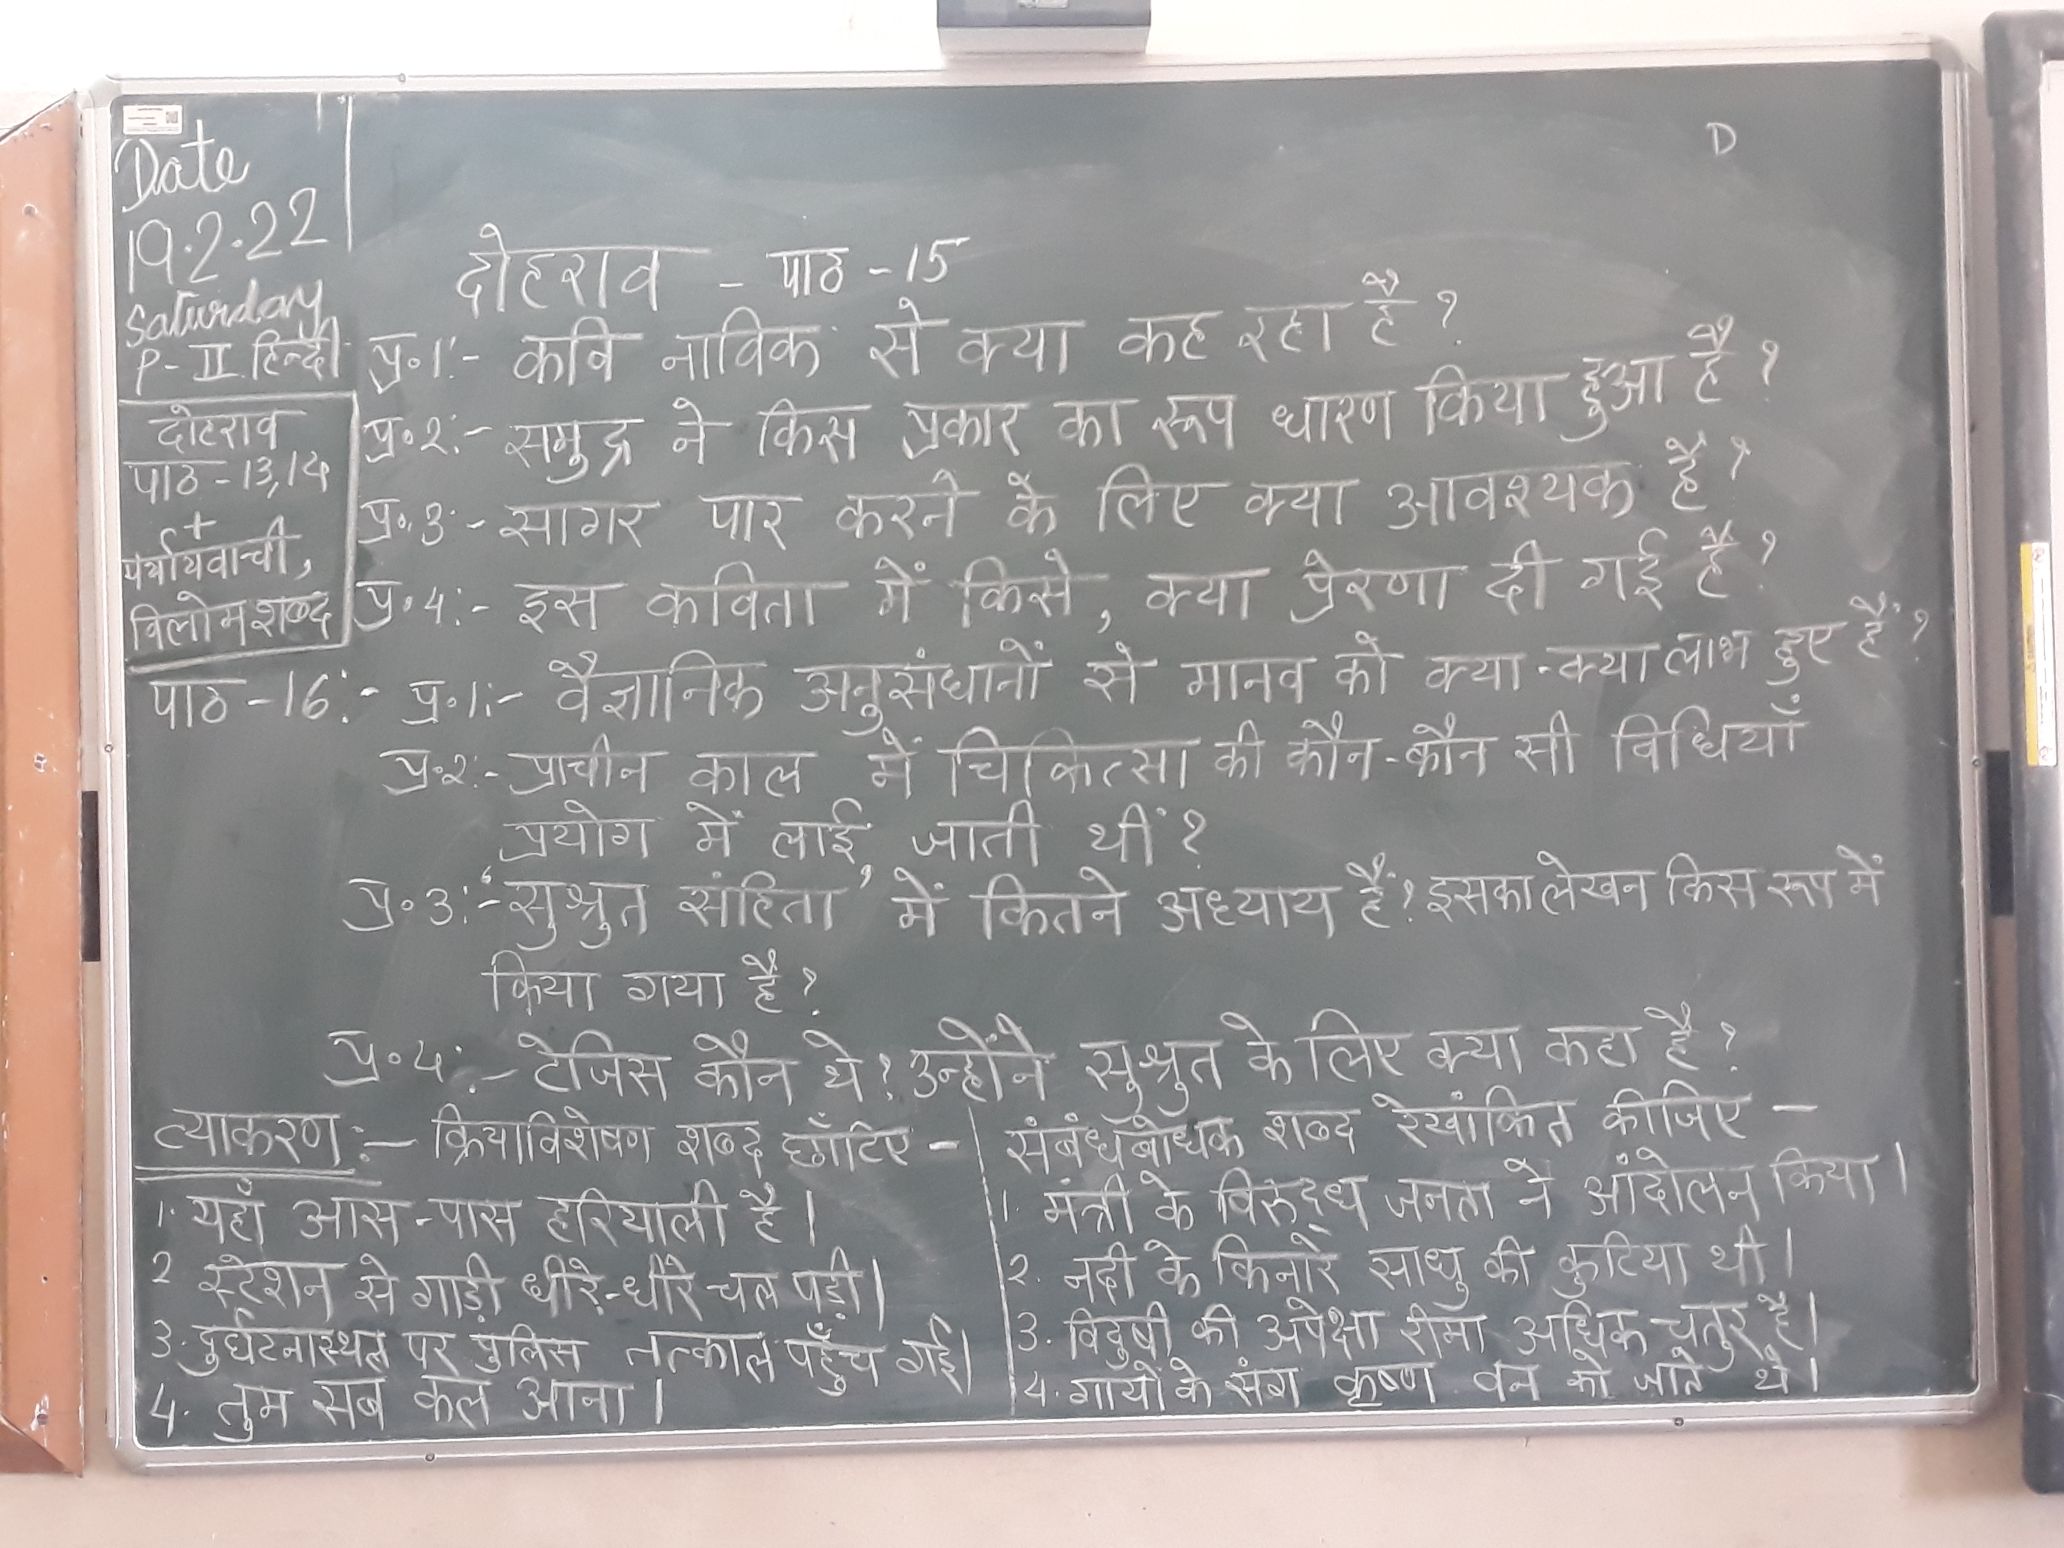 D
Date
19.2.22
Saturday
P-II हिन्दी
दोहराव
पाठ-13,14
+
पर्यायवाची,
विलोम शब्द
दोहराव - पाठ -15
प्र॰1:- कवि नाविक से क्या कह रहा है?
प्र॰2:- समुद्र ने किस प्रकार का रूप धारण किया हुआ है?
प्र॰3:- सागर पार करने के लिए क्या आवश्यक है?
प्र॰4:- इस कविता में किसे, क्या प्रेरणा दी गई है?
पाठ-16:- प्र॰1:- वैज्ञानिक अनुसंधानों से मानव को क्या-क्या लाभ हुए हैं?
प्र॰2:- प्राचीन काल में चिकित्सा की कौन-कौन सी विधियाँ
प्रयोग में लाई जाती थीं?
प्र॰3:- 'सुश्रुत संहिता' में कितने अध्याय हैं? इसका लेखन किस रूप में
किया गया है?
प्र॰4:- टेजिस कौन थे? उन्होंने सुश्रुत के लिए क्या कहा है?
व्याकरण:- क्रियाविशेषण शब्द छाँटिए -
1. यहाँ आस-पास हरियाली है।
2 स्टेशन से गाड़ी धीरे-धीरे चल पड़ी।
3. दुर्घटनास्थल पर पुलिस तत्काल पहुँच गई।
4. तुम सब कल आना।
संबंधबोधक शब्द रेखांकित कीजिए -
1. मंत्री के विरुद्ध जनता ने आंदोलन किया।
2. नदी के किनारे साधु की कुटिया थी।
3. विदुषी की अपेक्षा रीमा अधिक चतुर है।
4. गायों के संग कृष्ण वन को जाते थे।